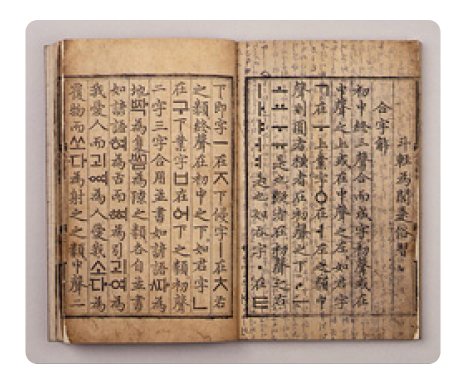 斗輕為閭是俗習
合字解
初中終三聲合而成字初聲或在
中聲之上或在中聲之左如君字
ㄱ在ㅜ上業字ㆁ在ㅓ左之類中
聲則圓者橫者在初聲之下ㆍㅡ
ㅗㅛㅜㅠ是也縱者在初聲之右
ㅣㅏㅑㅓㅕ是也如呑字ㆍ在ㅌ
下即字ㅡ在ㅈ下侵字ㅣ在ㅊ右
之類終聲在初中之下如君字ㄴ
在구下業字ㅂ在ᅌᅥ下之類初聲
二字三字合用並書如諺語ᄯᅡ為
地ᄧᅡᆨ為隻ᄢᅳᆷ為隙之類各自並書
如諺語혀為舌而ᅘᅧ為引괴여為
我愛人而괴ᅇᅧ為人愛我소다為
覆物而쏘다為射之之類中聲二